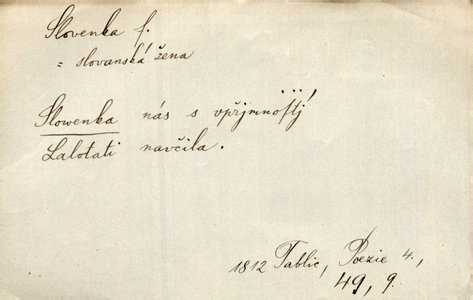 Slovenka f.
= slovanská žena
Slowenka nás s vpřjmností
Lalotati navčila.
1812 Tablic, Poezie 4.,
49, 9.